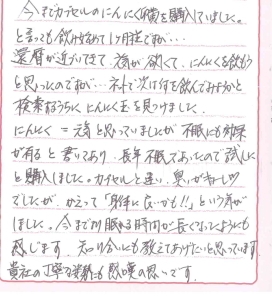 今までカプセルのにんにく卵黄を購入していました。
と言っても飲み始めて1ヶ月程ですが…
還暦が近づいてきて元気が欲しくて、にんにくを飲もう
と思ったのですが…ネットで次は何を飲んでみようかと
検索するうちににんにく玉を見つけました。
にんにく = 元気と思っていましたが不眠にも効果
が有ると書いてあり、長年不眠であったので試しに
と購入しました。カプセルと違い、臭いがキョーレツ
でしたが、かえって「身体に良いかも!!」という気が
しました。今までより眠れる時間が長くなったようにも
感じます。知り合いにも教えてあげたいと思っています。
貴社の丁寧な業務も感嘆の思いです。